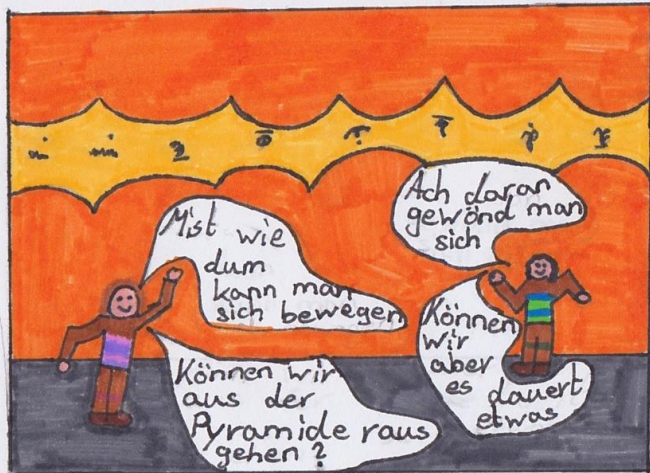 Mist wie
dum
kann man
sich bewegen
Ach daran
gewönd man
sich
Können wir
aus der
Pyramide raus
gehen?
Können
wir
aber
es dauert
etwas